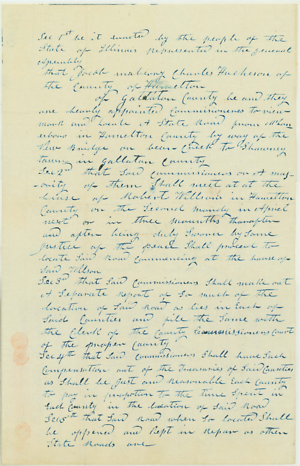 Sec 1st be it enacted by the people of the
State of Illinois represented in the general
assembly
that Jacob Charles Hutcheson of
the County of Hamelton
of Gallatan County be and they
are hearby appointed Commissioners to view
mark and locate a State Road from
in Hamelton County by way of the
New Bridge on bear Creek to Shawney
town in gallatan County
Sec 2nd that Said commissioners or a maj-
ority of them Shall meet at at the
house of Robert Willson in Hamelton
County on the Second munday in Aprel
next or in three months thereafter
and after being duly Sworn by Some
justice of the peace Shall proceed to
locate Said Road Commencing at the house of
Said Wilson
Sec 3rd that Said Commissioners Shall make out
A Separate Report of So much of the
location of Said Road as lies in Each of
Said Counties and file the Same with
the Clerk of the County Commissioners Court
of the proper County
Sec 4th that Said Commissioners Shall have Such
Compensation out of the Treasuries of Said Counties
as Shall be just and Reasonable Each County
to pay in proportion to the time Spent in
Each County in the location of Said Road
Sec 5th that Said Road when So located Shall
be oppened and Kept in Repair as other
State Roads are